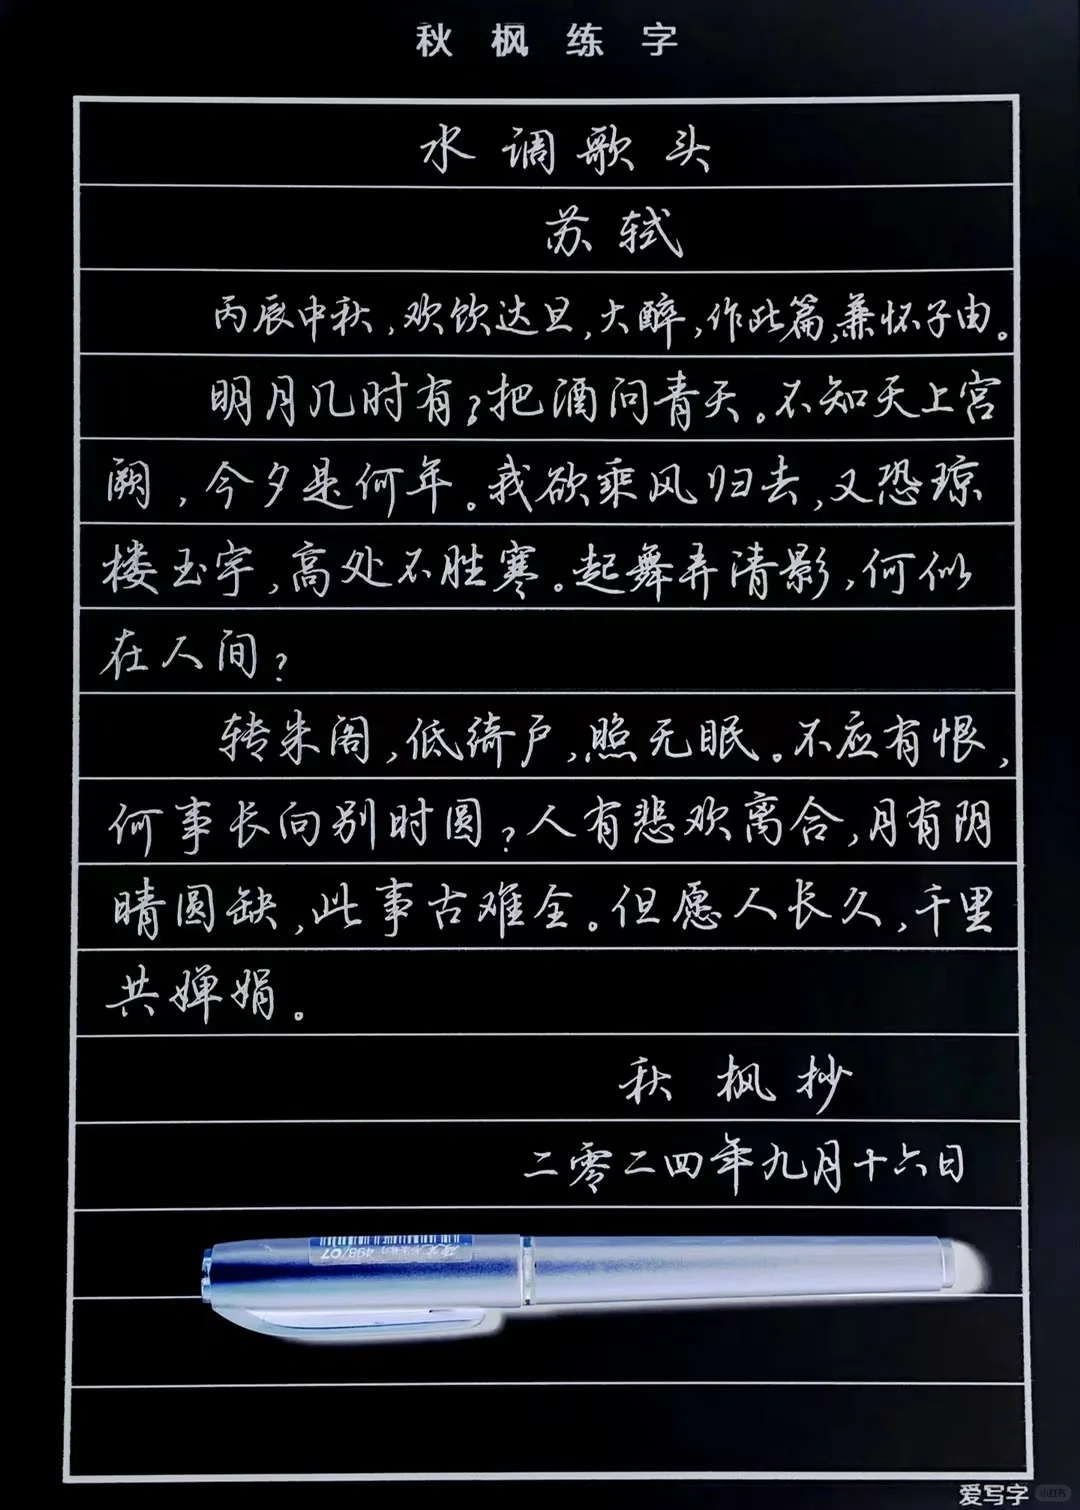 秋枫练字
水调歌头
苏轼
丙辰中秋,欢饮达旦,大醉,作此篇,兼怀子由。
明月几时有?把酒问青天。不知天上宫
阙,今夕是何年。我欲乘风归去,又恐琼
楼玉宇,高处不胜寒。起舞弄清影,何似
在人间?
转朱阁,低绮户,照无眠。不应有恨,
何事长向别时圆?人有悲欢离合,月有阴
晴圆缺,此事古难全。但愿人长久,千里
共婵娟。
秋枫抄
二零二四年九月十六日
498/07
爱写字
小红书